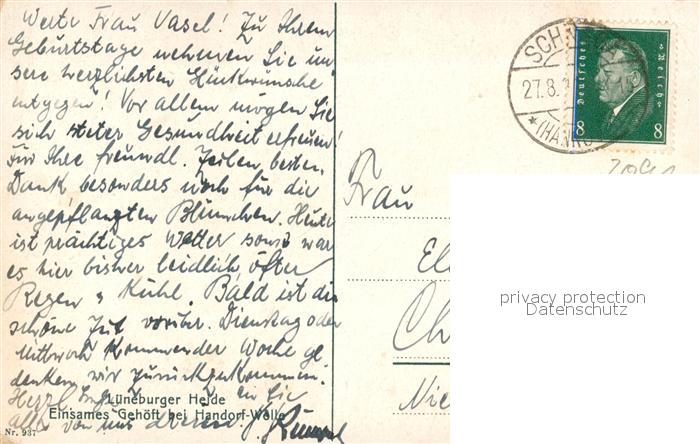 Werte Frau Vasel! Zu Ihrem
Geburtstage nehmen Sie un-
sere herzlichsten Glückwünsche
entgegen! Vor allem mögen Sie
sich steter Gesundheit erfreuen!
Für Ihre freundl. Zeilen besten
Dank besonders noch für die
angepflanzten Blümchen. Heute
ist prächtiges Wetter sonst war
es hier bisher leidlich, öfter
Regen u Kühl. Bald ist die
schöne Zeit vorüber. Dienstag oder
Mittwoch kommender Woche ge
denken wir zurückzukommen.
Herzl. an Sie
alle von uns
Lüneburger Heide
Einsames Gehöft bei Handorf-Welle
Nr. 937
SCH
27.8.
(HANN
Deutsches Reich
8 8
Frau
El
Ch
Nie
privacy protection
Datenschutz